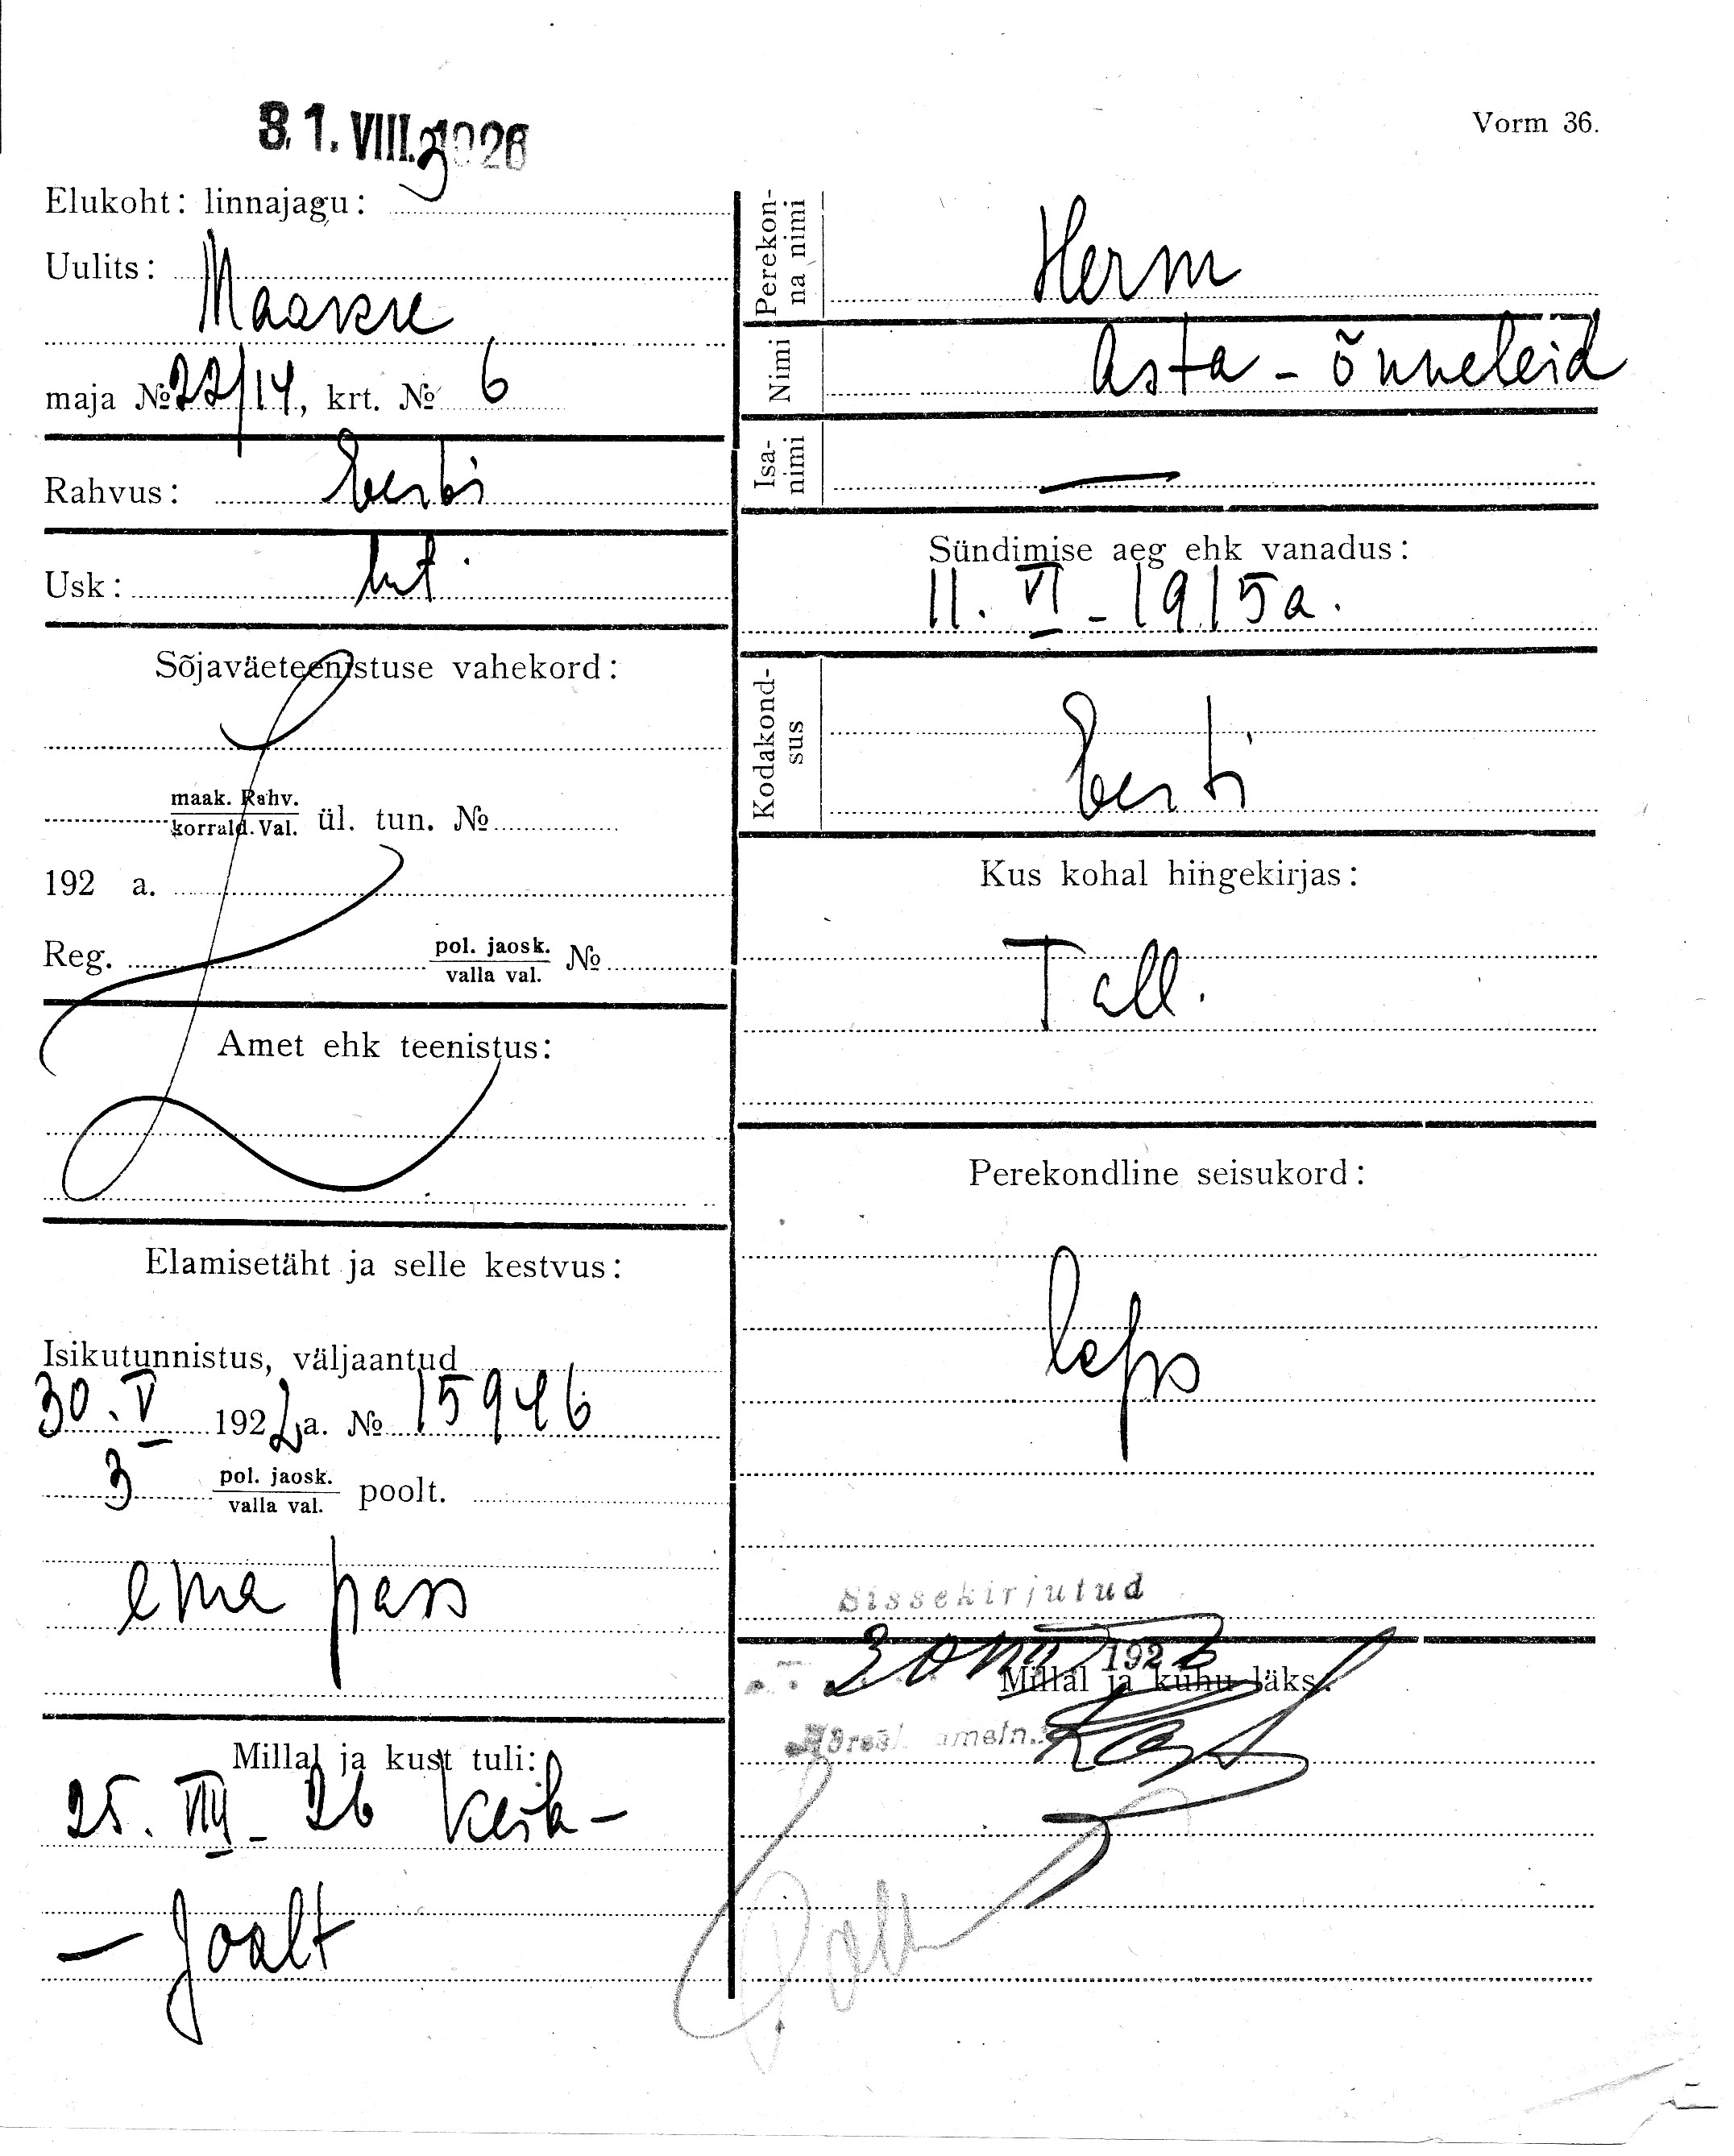 31. VIII. 1926
Vorm 36.
Elukoht: linnajagu: 3
Uulits:
Maakre
maja № 22/14, krt. № 6
Rahvus: Eesti
Usk: lut
Sõjaväeteenistuse vahekord:
maak. Rahv.
korrald. Val. ül. tun. №
192 a.
Reg. pol. jaosk.
valla val. №
Amet ehk teenistus:
Elamisetäht ja selle kestvus:
Isikutunnistus, väljaantud
30. V 1922 a. № 15946
3 pol. jaosk.
valla val. poolt.
ema pass
Millal ja kust tuli:
25. VIII - 26 Keila-
- Joalt
Perekon-
na nimi
Herm
Nimi
Asta - Õnneleid
Isa-
nimi
—
Sündimise aeg ehk vanadus:
11. VI - 1915 a.
Kodakond-
sus
Eesti
Kus kohal hingekirjas:
Tall.
Perekondline seisukord:
laps
Sissekirjutud
30 192
Millal ja kuhu läks: